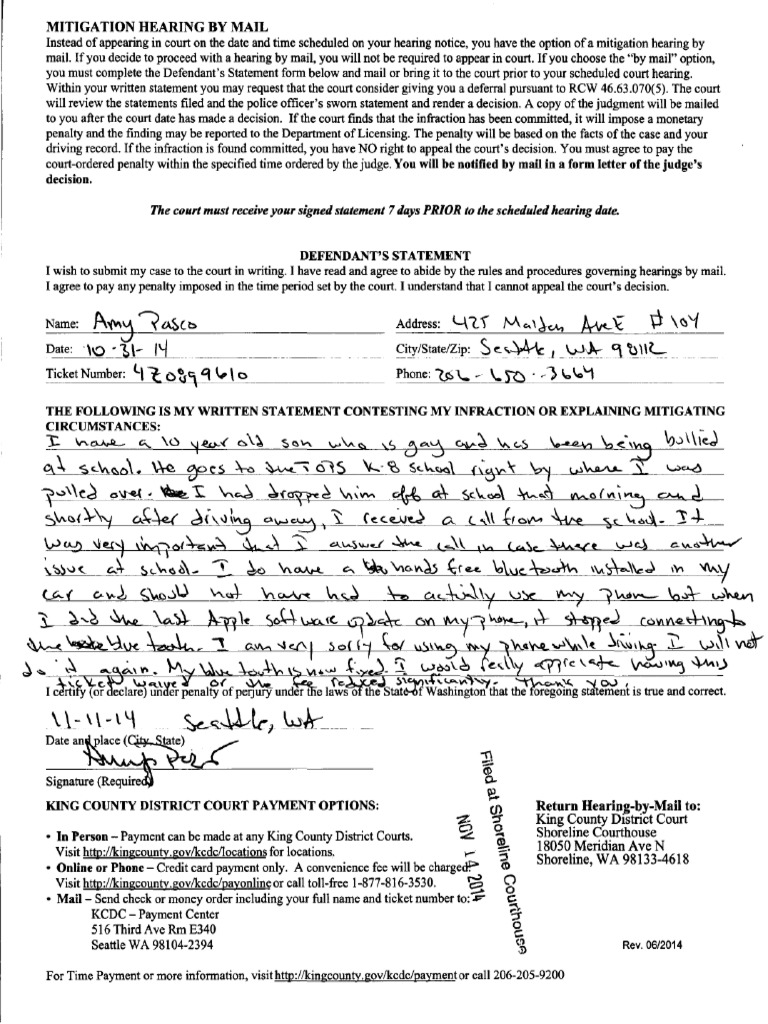 MITIGATION HEARING BY MAIL
Instead of appearing in court on the date and time scheduled on your hearing notice, you have the option of a mitigation hearing by
mail. If you decide to proceed with a hearing by mail, you will not be required to appear in court. If you choose the "by mail" option,
you must complete the Defendant's Statement form below and mail or bring it to the court prior to your scheduled court hearing.
Within your written statement you may request that the court consider giving you a deferral pursuant to RCW 46.63.070(5). The court
will review the statements filed and the police officer's sworn statement and render a decision. A copy of the judgment will be mailed
to you after the court date has made a decision. If the court finds that the infraction has been committed, it will impose a monetary
penalty and the finding may be reported to the Department of Licensing. The penalty will be based on the facts of the case and your
driving record. If the infraction is found committed, you have NO right to appeal the court's decision. You must agree to pay the
court-ordered penalty within the specified time ordered by the judge. You will be notified by mail in a form letter of the judge's
decision.
The court must receive your signed statement 7 days PRIOR to the scheduled hearing date.
DEFENDANT'S STATEMENT
I wish to submit my case to the court in writing. I have read and agree to abide by the rules and procedures governing hearings by mail.
I agree to pay any penalty imposed in the time period set by the court. I understand that I cannot appeal the court's decision.
Name: Amy Pasco Address: 425 Malden Ave E #104
Date: 10-31-14 City/State/Zip: Seattle, WA 98112
Ticket Number: 4Z0899610 Phone: 206-650-3664
THE FOLLOWING IS MY WRITTEN STATEMENT CONTESTING MY INFRACTION OR EXPLAINING MITIGATING
CIRCUMSTANCES:
I have a 10 year old son who is gay and has been being bullied
at school. He goes to the TOPS K-8 school right by where I was
pulled over. I had dropped him off at school that morning and
shortly after driving away, I received a call from the school. It
was very important that I answer the call in case there was another
issue at school. I do have a hands free bluetooth installed in my
car and should not have had to actually use my phone but when
I did the last Apple software update on my phone, it stopped connecting to
the blue tooth. I am very sorry for using my phone while driving. I will not
do it again. My blue tooth is now fixed. I would really appreciate having this
ticket waived or the fee reduced significantly. Thank you.
I certify (or declare) under penalty of perjury under the laws of the State of Washington that the foregoing statement is true and correct.
11-11-14 Seattle, WA
Date and place (City, State)
Signature (Required)
KING COUNTY DISTRICT COURT PAYMENT OPTIONS:
• In Person – Payment can be made at any King County District Courts.
Visit http://kingcounty.gov/kcdc/locations for locations.
• Online or Phone – Credit card payment only. A convenience fee will be charged.
Visit http://kingcounty.gov/kcdc/payonline or call toll-free 1-877-816-3530.
• Mail – Send check or money order including your full name and ticket number to:
KCDC – Payment Center
516 Third Ave Rm E340
Seattle WA 98104-2394
Filed at Shoreline Courthouse
NOV 14 2014
Return Hearing-by-Mail to:
King County District Court
Shoreline Courthouse
18050 Meridian Ave N
Shoreline, WA 98133-4618
Rev. 06/2014
For Time Payment or more information, visit http://kingcounty.gov/kcdc/payment or call 206-205-9200